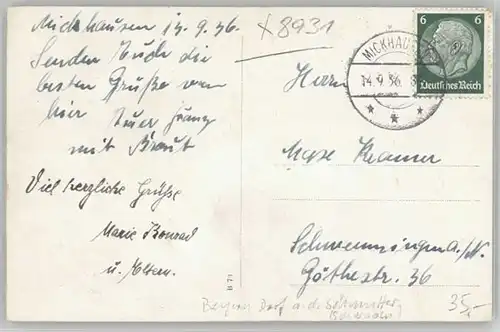 Mickhausen 13.9.36.
Senden Euch die
besten Grüße von
hier Euer Franz
mit Braut
Viel herzliche Grüße
Marie Konrad
u. Eltern.
x 8931
MICKHAUSEN
14.9.36
6 6
Deutsches Reich
Herrn
Max Kramer
Schwenningen a./N.
Göthestr. 36
B 71
Bayern Dorf a. d. Schmutter
35,-